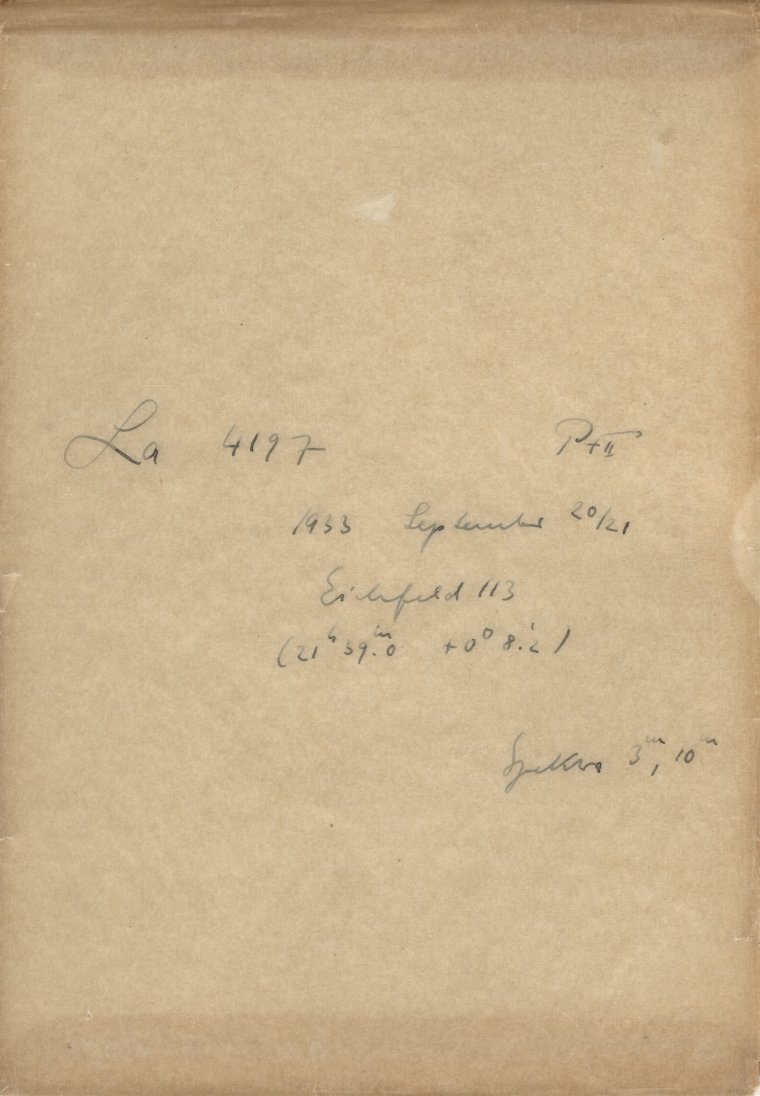 La 4197 P+II
1933 September 20/21
Eichfeld 113
(21ʰ 39.ᵐ0 +0° 8.'2)
Spektra 3ᵐ, 10ᵐ